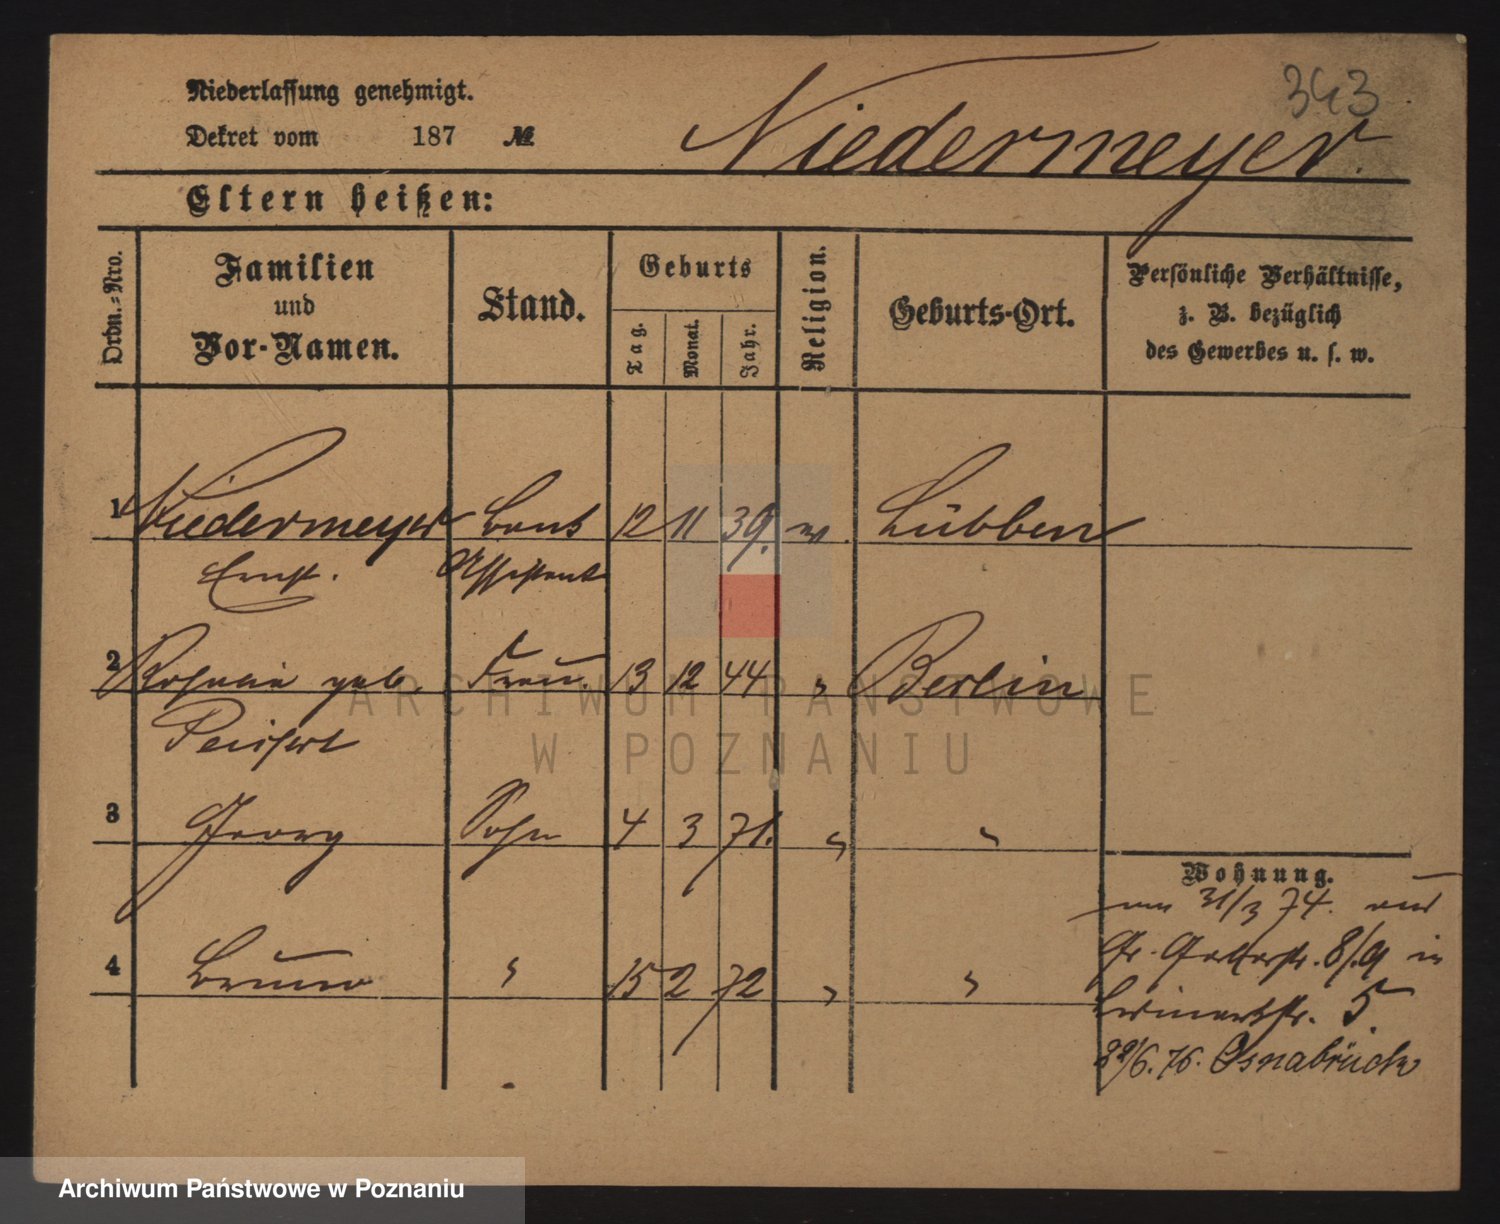 343
Niederlassung genehmigt.
Dekret vom 187 № Niedermeyer.
Eltern heißen:
Ordn.-Nro. Familien und Vor-Namen. Stand. Geburts Tag. Monat. Jahr. Religion. Geburts-Ort. Persönliche Verhältnisse, z. B. bezüglich des Gewerbes u. s. w.
1 Niedermeyer 12 11 39. Lübben
Ernst. Assistent
2 geb. Frau. 13 12 44 " Berlin
3 Georg Sohn 4 3 71. " "
Wohnung.
31/3 74. aus
4 Bruno " 15 2 72 " "
Gr. Gerberstr. 8/9 in
5.
/6. 76. Osnabrück
ARCHIWUM PAŃSTWOWE
W POZNANIU
Archiwum Państwowe w Poznaniu